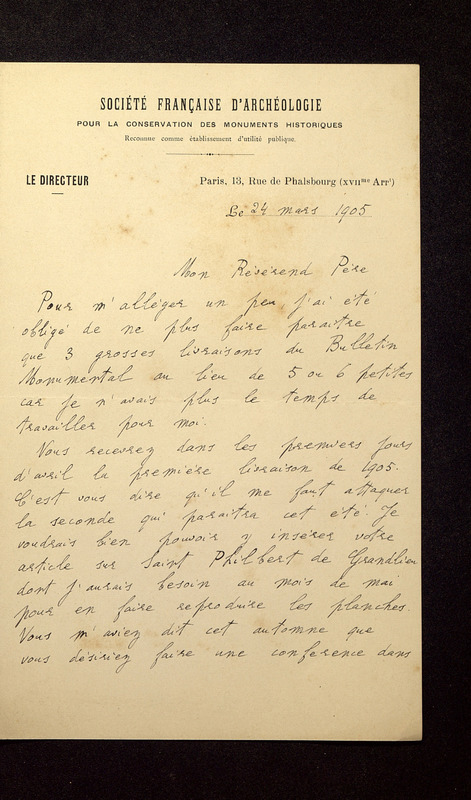 SOCIÉTÉ FRANÇAISE D'ARCHÉOLOGIE
POUR LA CONSERVATION DES MONUMENTS HISTORIQUES
Reconnue comme établissement d'utilité publique.
LE DIRECTEUR
Paris, 13, Rue de Phalsbourg (XVIIme Arrt)
Le 24 mars 1905
Mon Révérend Père
Pour m'alléger un peu j'ai été
obligé de ne plus faire paraître
que 3 grosses livraisons du Bulletin
Monumental au lieu de 5 ou 6 petites
car je n'avais plus le temps de
travailler pour moi.
Vous recevrez dans les premiers jours
d'avril la première livraison de 1905.
C'est vous dire qu'il me faut attaquer
la seconde qui paraitra cet été. Je
voudrais bien pouvoir y insérer votre
article sur Saint Philbert de Grandlieu
dont j'aurais besoin au mois de mai
pour en faire reproduire les planches.
Vous m'aviez dit cet automne que
vous désiriez faire une conférence dans